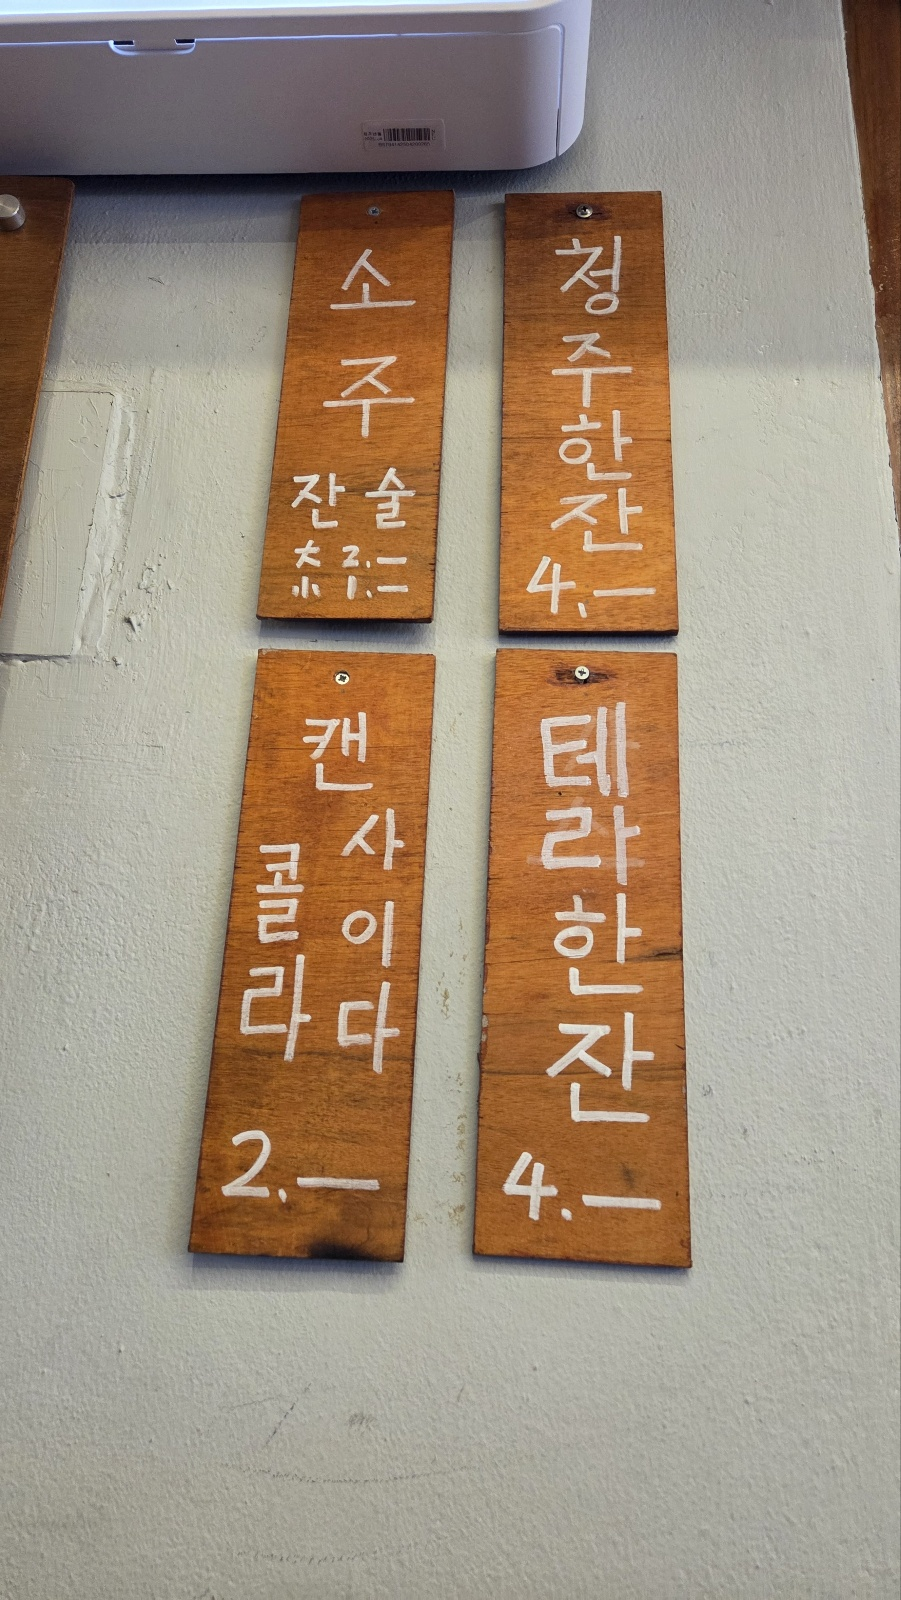 소주
잔술 2.-
小 1.-
청주한잔
4.-
캔
사이다
콜라
2.-
테라한잔
4.-